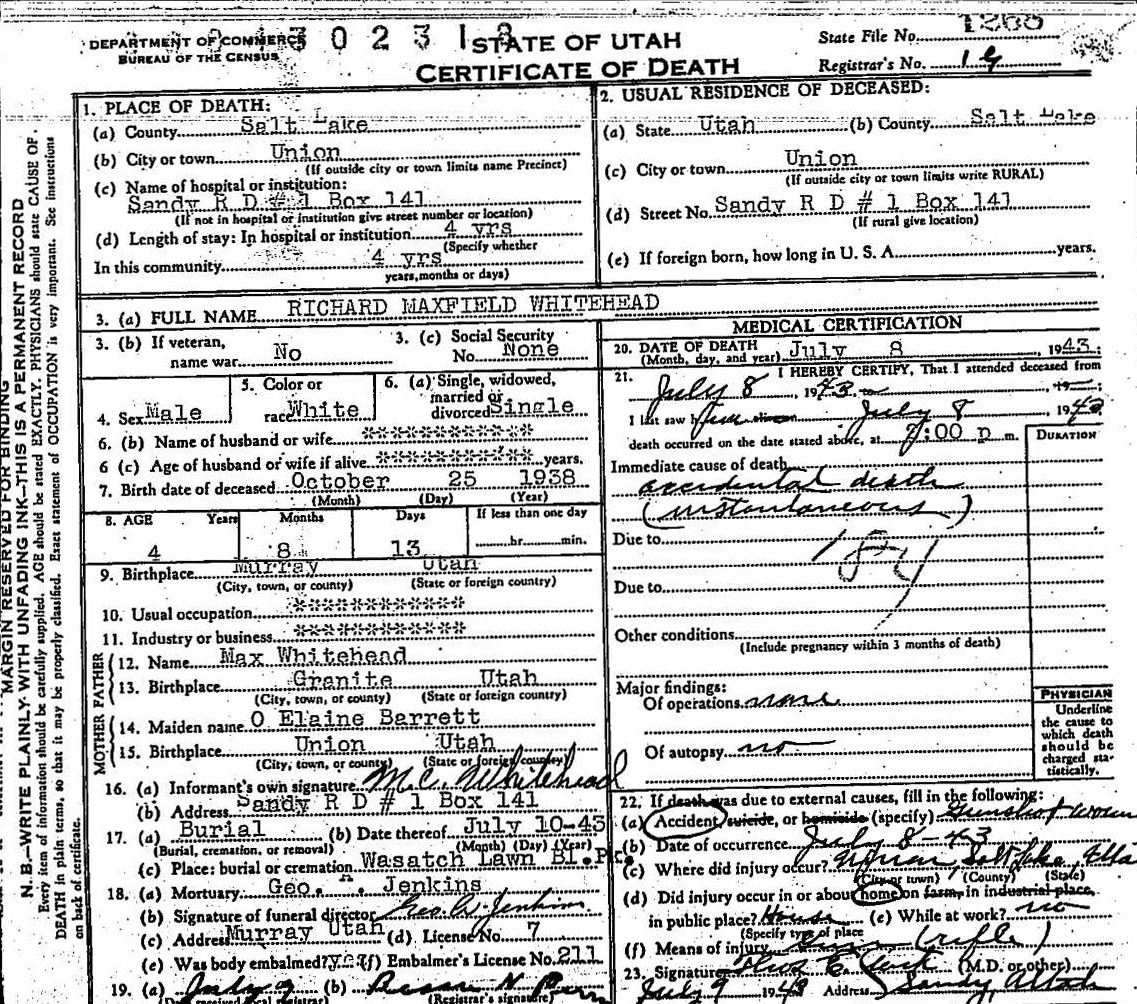 DEPARTMENT OF COMMERCE
BUREAU OF THE CENSUS
3 0 2 3 1 3
STATE OF UTAH
CERTIFICATE OF DEATH
State File No. 1268
Registrar's No. 19
MARGIN RESERVED FOR BINDING
N. B.—WRITE PLAINLY WITH UNFADING INK—THIS IS A PERMANENT RECORD
Every item of information should be carefully supplied. AGE should be stated EXACTLY. PHYSICIANS should state CAUSE OF
DEATH in plain terms, so that it may be properly classified. Exact statement of OCCUPATION is very important. See instructions
on back of certificate.
1. PLACE OF DEATH:
(a) County Salt Lake
(b) City or town Union
(If outside city or town limits name Precinct)
(c) Name of hospital or institution:
Sandy R D # 1 Box 141
(If not in hospital or institution give street number or location)
(d) Length of stay: In hospital or institution 4 yrs
(Specify whether
In this community 4 yrs
years, months or days)
2. USUAL RESIDENCE OF DECEASED:
(a) State Utah (b) County Salt Lake
(c) City or town Union
(If outside city or town limits write RURAL)
(d) Street No. Sandy R D # 1 Box 141
(If rural give location)
(e) If foreign born, how long in U. S. A. years.
3. (a) FULL NAME RICHARD MAXFIELD WHITEHEAD
3. (b) If veteran, name war No
3. (c) Social Security No. None
4. Sex Male
5. Color or race White
6. (a) Single, widowed, married or divorced Single
6. (b) Name of husband or wife *************
6 (c) Age of husband or wife if alive ************ years.
7. Birth date of deceased October 25 1938
(Month) (Day) (Year)
8. AGE Years Months Days If less than one day
4 8 13 hr. min.
9. Birthplace Murray Utah
(City, town, or county) (State or foreign country)
10. Usual occupation *************
11. Industry or business *************
FATHER
12. Name Max Whitehead
13. Birthplace Granite Utah
(City, town, or county) (State or foreign country)
MOTHER
14. Maiden name O Elaine Barrett
15. Birthplace Union Utah
(City, town, or county) (State or foreign country)
16. (a) Informant's own signature M.C. Whitehead
(b) Address Sandy R D # 1 Box 141
17. (a) Burial (b) Date thereof July 10-43
(Burial, cremation, or removal) (Month) (Day) (Year)
(c) Place: burial or cremation Wasatch Lawn Bl. Pk.
18. (a) Mortuary Geo. A. Jenkins
(b) Signature of funeral director Geo. A. Jenkins
(c) Address Murray Utah (d) License No. 7
(e) Was body embalmed? yes (f) Embalmer's License No. 211
19. (a) July 9 (b)
(Date received local registrar) (Registrar's signature)
MEDICAL CERTIFICATION
20. DATE OF DEATH
(Month, day, and year) July 8, 1943;
21. I HEREBY CERTIFY, That I attended deceased from
July 8, 1943 19
I last saw him alive July 8, 1943
death occurred on the date stated above, at 7:00 p m.
DURATION
Immediate cause of death
accidental death
(instantaneous)
Due to
Due to
Other conditions
(Include pregnancy within 3 months of death)
Major findings:
Of operations none
Of autopsy no
PHYSICIAN
Underline
the cause to
which death
should be
charged sta-
tistically.
22. If death was due to external causes, fill in the following:
(a) Accident, suicide, or homicide (specify) Gunshot woun
(b) Date of occurrence July 8-43
(c) Where did injury occur? Union, Salt Lake, Utah
(City or town) (County) (State)
(d) Did injury occur in or about home, on farm, in industrial place,
in public place? House (e) While at work? no
(Specify type of place
(f) Means of injury Gun (rifle)
23. Signature (M.D. or other)
July 9 1943 Address Sandy, Utah